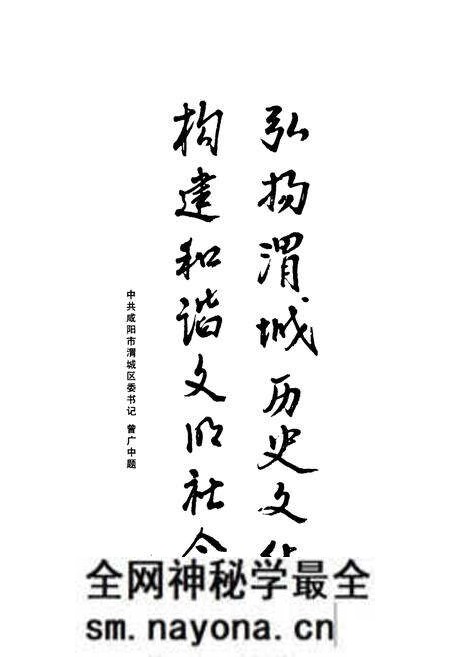 弘扬渭城历史文化
构建和谐文明社会
中共咸阳市渭城区委书记 曾广中题
全网神秘学最全
sm.nayona.cn